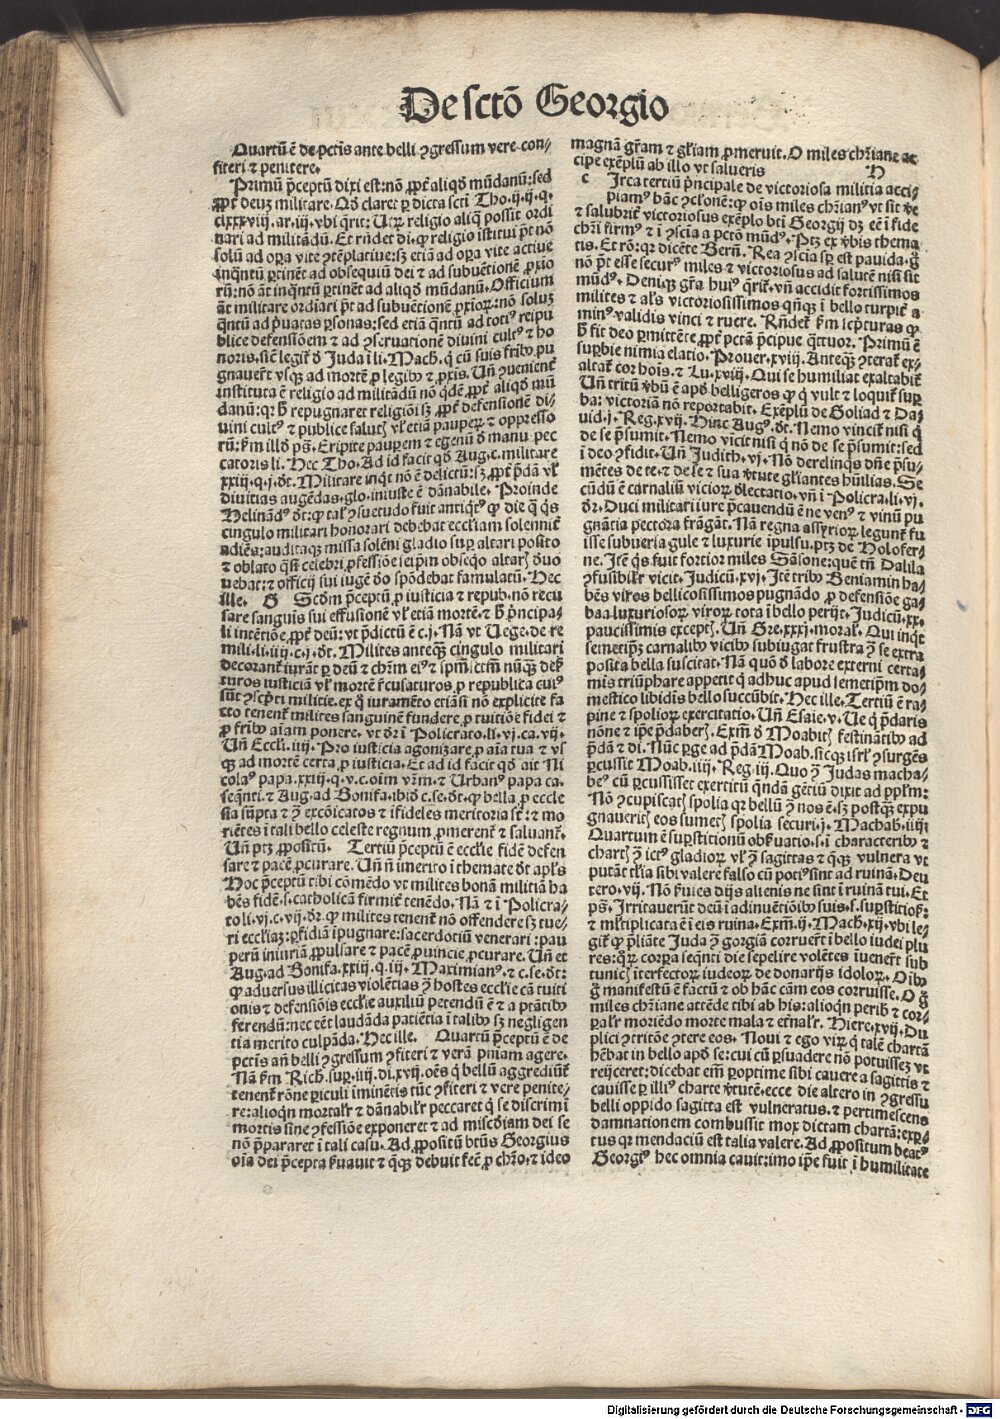 De sctō Georgio
Quartū ē de pctīs ante belli ɔgressum vere con-
fiteri ⁊ penitere.
Primū p̄ceptū dixi est: nō ꝓpt̄ aliqd̄ mūdanū: sed
ꝓpt̄ deuȝ militare. Qd̄ claret ꝑ dicta scti Tho. ij. ij. q.
clxxxviij. ar. iij. vbi q̄rit: Utꝝ religio aliq̄ possit ordi
nari ad militādū. Et rn̄det di. ꝙ religio īstitui pōt nō
solū ad oꝑa vite ɔtēplatiue: sȝ etiā ad oꝑa vite actiue
inq̄ntū ꝑtinēt ad obsequiū dei ⁊ ad subuētionē ꝓxīo
rū: nō āt inq̄ntū ꝑtinēt ad aliqd̄ mūdanū. Officium
āt militare ordiari pōt ad subuētionē ꝓxioꝝ: nō soluȝ
q̄ntū ad p̄uatas ꝑsonas: sed etiā q̄ntū ad totiꝰ reipu
blice defensiōem ⁊ ad ɔseruationē diuini cultꝰ ⁊ ho
noris. sic̄ legit̄ d̄ Juda ī li. Mach. q̄ cū suis frībꝰ pu
gnauer̄t vsqꝫ ad mortē ꝓ legibꝰ ⁊ ꝓxīs. Un̄ ɔueniēt̄
instituta ē religio ad militādū nō qdē ꝓpt̄ aliqd̄ mū
danū: qꝛ h̄ repugnaret religiōi sȝ ꝓpt̄ defensionē di-
uini cultꝰ ⁊ publice salutꝭ vl̄ etiā pauperꝝ ⁊ oppresso
rū: km̄ illd̄ ps̄. Eripite pauperem ⁊ egenū d̄ manu pec
catoris li. Hec Tho. Ad id facit qd̄ Aug. c. militare
xxiij. q. j. dt̄. Militare inqt nō ē delictū: sȝ ꝓpt̄ p̄dā vl̄
diuitias augēdas. glo. iniuste ē dānabile. Proinde
Helinādꝰ dt̄: ꝙ tal̄ ɔsuetudo fuit antiqtꝰ ꝙ die q̄ q̄s
cingulo militari honorari debebat eccl̄iam solennit̄
adiēs: auditaqꝫ missa solēni gladio suꝑ altari posito
⁊ oblato q̄si celebri ꝓfessiōe seip̄m obseqo altarꝭ deuo
uebat: ⁊ officij sui iugē deo spōdebat famulatū. Hec
ille. G Scdm p̄ceptū ꝓ iusticia ⁊ repub. nō recu
sare sanguis sui effusionē vl̄ etiā mortē. ⁊ h̄ p̄ncipa-
li intētiōe ꝓpt̄ deū: vt p̄dictū ē c. j. Nā vt Uege. de re
mili. li. iij. c. j. dt̄. Milites anteqꝫ cingulo militari
decorant̄ iurāt ꝑ deū ⁊ chr̄m eiꝰ ⁊ spm̄ sctm̄ nūqꝫ dese
turos iusticiā vl̄ mortē r̄cusaturos ꝓ republica cuiꝰ
sūt ɔscpti militie. ex q̄ iuramēto etiāsi nō explicite fa
cto tenent̄ milites sanguinē fundere ꝓ tuitiōe fidei ⁊
ꝓ frībꝰ aīam ponere. vt dr̄ ī Policrato. li. vj. ca. vij.
Un̄ Eccli. iiij. Pro iusticia agonizare ꝓ aīa tua ⁊ vs
qꝫ ad mortē certa ꝓ iusticia. Et ad id facit qd̄ ait Ni
colaꝰ papa. xxiij. q. v. c. oīm vr̄m. ⁊ Urbanꝰ papa ca.
seq̄nti. ⁊ Aug. ad Bonifa. ibid̄ c. se. dt̄. ꝙ bella ꝓ eccle
sia sūpta ⁊ ɔ̄ excōicatos ⁊ ifideles meritoria st̄: ⁊ mo
riētes ī tali bello celeste regnum ꝓmerent̄ ⁊ saluant̄.
Un̄ ptȝ ꝓpositū. Tertiū p̄ceptū ē eccl̄ie fidē defen
sare ⁊ pacē ꝓcurare. Un̄ ñ imerito ī themate dt̄ apl̄s
Hoc p̄ceptū tibi cōmēdo vt milites bonā militiā ha
bēs fidē. s. catholicā firmit̄ tenēdo. Nā ⁊ ī Policra-
to li. vj. c. vij. dr̄. ꝙ milites tenent̄ nō offendere sȝ tue-
ri eccl̄iaȝ: ꝑfidiā īpugnare: sacerdotiū venerari: pau
perū iniuriā ꝓpulsare ⁊ pacē ꝓuincie ꝓcurare. Un̄ et
Aug. ad Bonifa. xxiij. q. iij. Maximianꝰ. ⁊ c. se. dt̄:
ꝙ aduersus illicitas violētias ɔ̄ hostes eccl̄ie cā tuiti
onis ⁊ defensiōis eccl̄ie auxiliū petendū ē ⁊ a ptātibꝰ
ferendū: nec eēt laudāda patiētia ī talibꝰ sȝ negligen
tia merito culpāda. Hec ille. Quartū p̄ceptū ē de
pctīs an̄ belli ɔgressum ɔfiteri ⁊ verā pn̄iam agere.
Nā km̄ Rich. suꝑ. iiij. di. xvij. oēs q̄ bellū aggrediūt̄
tenent̄ rōne ꝑiculi iminētis tūc ɔfiteri ⁊ vere penite-
re: alioqn̄ mortal̄r ⁊ dānabil̄r peccaret q̄ se discrīmi
mortis sine ɔfessiōe exponeret ⁊ ad miscd̄iam dei se
nō p̄pararet ī tali casu. Ad ꝓpositū btūs Georgius
oīa dei p̄cepta s̄uauit ⁊ q̄qꝫ debuit fec̄ ꝓ chr̄o. ⁊ ideo
magnā gr̄am ⁊ gl̄iam ꝓmeruit. O miles chr̄iane ac
cipe exēplū ab illo vt salueris H
c Irca tertiū p̄ncipale de victoriosa militia acci-
piamꝰ hāc ɔclonē: ꝙ oīs miles chr̄ianꝰ vt sit vere
⁊ salubrit̄ victoriosus exēplo bti Georgij dȝ eē ī fide
chr̄i firmꝰ ⁊ ī ɔscīa a pctō mūdꝰ. Ptȝ ex vbis thema
tis. Et rō: qꝛ dicēte Bern̄. Rea ɔscīa sꝑ est pauida. g̊
nō pōt esse securꝰ miles ⁊ victoriosus ad salutē nisi sit
mūdꝰ. Deniqꝫ gr̄a huiꝰ q̄rit̄. vn̄ accidit fortissimos
milites ⁊ al̄s victoriosissimos qn̄qꝫ ī bello turpit̄ a
minꝰ validis vinci ⁊ ruere. Rn̄det̄ km̄ scp̄turas ꝙ
h̄ fit deo ꝑmittēte ꝓpt̄ pctā p̄cipue q̄ttuor. Primū ē
suꝑbie nimia elatio. Prouer. xviij. Anteqꝫ ɔterat̄ ex-
altat̄ cor hoīs. ⁊ Lu. xviij. Qui se humiliat exaltabit̄
Un̄ tritū ꝟbū ē apd̄ belligeros ꝙ q̄ vult ⁊ loquit̄ suꝑ
ba: victoriā nō reportabit. Exēplū de Goliad ⁊ Da-
uid. j. Reg. xvij. Hinc Augꝰ. dt̄. Nemo vincit̄ nisi q̄
de se p̄sumit. Nemo vīcit nisi q̄ nō de se p̄sumit: sed
ī deo ɔfidit. Un̄ Judith. vj. Nō derelinq̄s dn̄e p̄su-
mētes de te. ⁊ de se ⁊ sua ꝟtute gl̄iantes hūilias. Se
cūdū ē carnaliū vicioꝝ delectatio. vn̄ ī Policra. li. vj.
dr̄. Duci militari iure p̄cauendū ē ne venꝰ ⁊ vinū pu
gnātia pectora frāgāt. Nā regna assyrioꝝ legunt̄ fu
isse subuersa gule ⁊ luxurie īpulsu. ptȝ de Holofer-
ne. Itē q̄s fuit fortior miles Sāsone: quē tn̄ Dalila
ɔfusibil̄r vicit. Judicū. xvj. Itē tribꝰ Beniamin ha-
bēs viros bellicosissimos pugnādo ꝓ defensiōe ga-
baa luxuriosoꝝ viroꝝ tota ī bello perijt. Judicū. xx.
paucissimis exceptꝭ. Un̄ Gre. xxxj. moral̄. Qui inqt
semetip̄m carnalibꝰ vicibꝰ subiugat frustra ɔ̄ se extra
posita bella suscitat. Nā quō d̄ labore externi certa-
mīs triūphare appetit q̄ adhuc apud semetip̄m do-
mestico libidinis bello succūbit. Hec ille. Tertiū ē ra
pine ⁊ spolioꝝ exercitatio. Un̄ Esaie. v. Ue q̄ p̄daris
nōne ⁊ ip̄e p̄daberꝭ. Exm̄ d̄ Moabitꝭ festinātibꝰ ad
p̄dā ⁊ di. Nūc perge ad p̄dā Moab. sicqꝫ isrl̄ ɔsurgēs
ꝑcussit Moab. iiij. Reg. iij. Quo ɔ̄ Judas macha-
beꝰ cū ꝑcussisset exercitū q̄ndā gētiū dixit ad pp̄lm:
Nō ɔcupiscatꝭ spolia qꝛ bellū ɔ̄ nos ē. sȝ postqꝫ expu
gnaueritꝭ eos sumetꝭ spolia securi. j. Machab. iiij.
Quartum ē suꝑstitionū obseruatio. s. ī characteribꝰ ⁊
chartꝭ ɔ̄ ictꝰ gladioꝝ vl̄ ɔ̄ sagittas ⁊ q̄qꝫ vulnera vt
putāt t̄lia sibi valere falso cū potiꝰ sint ad ruinā. Deu
tero. vij. Nō s̄uies dijs alienis ne sint ī ruinā tui. Et
ps̄. Irritauerūt deū ī adinuētiōibꝰ suis. s. suꝑstitiosꝭ:
⁊ ml̄tiplicata ē ī eis ruina. Exm̄. ij. Mach. xij. vbi le-
git̄ ꝙ p̄liāte Juda ɔ̄ gorgiā corruer̄t ī bello iudei plu
res: qꝝ corꝑa seq̄nti die sepelire volētes iuener̄t sub
tunicꝭ iterfectoꝝ iudeoꝝ de donarijs idoloꝝ. Oībꝰ
g̊ manifestū ē factū ⁊ ob hāc cām eos corruisse. O g̊
miles chr̄iane attēde tibi ab his: alioqn̄ peribꝭ ⁊ cor-
ꝑal̄r moriēdo morte mala ⁊ et̄nal̄r. Hiere. xvij. Du
plici ɔtritōe ɔtere eos. Noui ⁊ ego virꝝ q̄ talē chartā
hēbat in bello apd̄ se: cui cū ꝑsuadere nō potuisseȝ vt
reijceret: dicebat em̄ ꝑoptime sibi cauere a sagittis ⁊
cauisse ꝑ illiꝰ charte ꝟtutē. ecce die altero in ɔgressu
belli oppido sagitta est vulneratus. ⁊ pertimescens
damnationem combussit mox dictam chartā: exꝑ-
tus qꝛ mendaciū est talia valere. Ad ꝓpositum beatꝰ
Georgiꝰ hec omnia cauit: imo ip̄e fuit ī humilitate
Digitalisierung gefördert durch die Deutsche Forschungsgemeinschaft - DFG